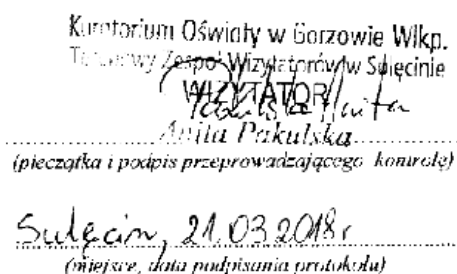 Kuratorium Oświaty w Gorzowie Wlkp.
Zespół Wizytatorów w Sulęcinie
WIZYTATOR
Anita Pakulska
(pieczątka i podpis przeprowadzającego kontrolę)
Sulęcin, 21.03.2018r
(miejsce, data podpisania protokołu)